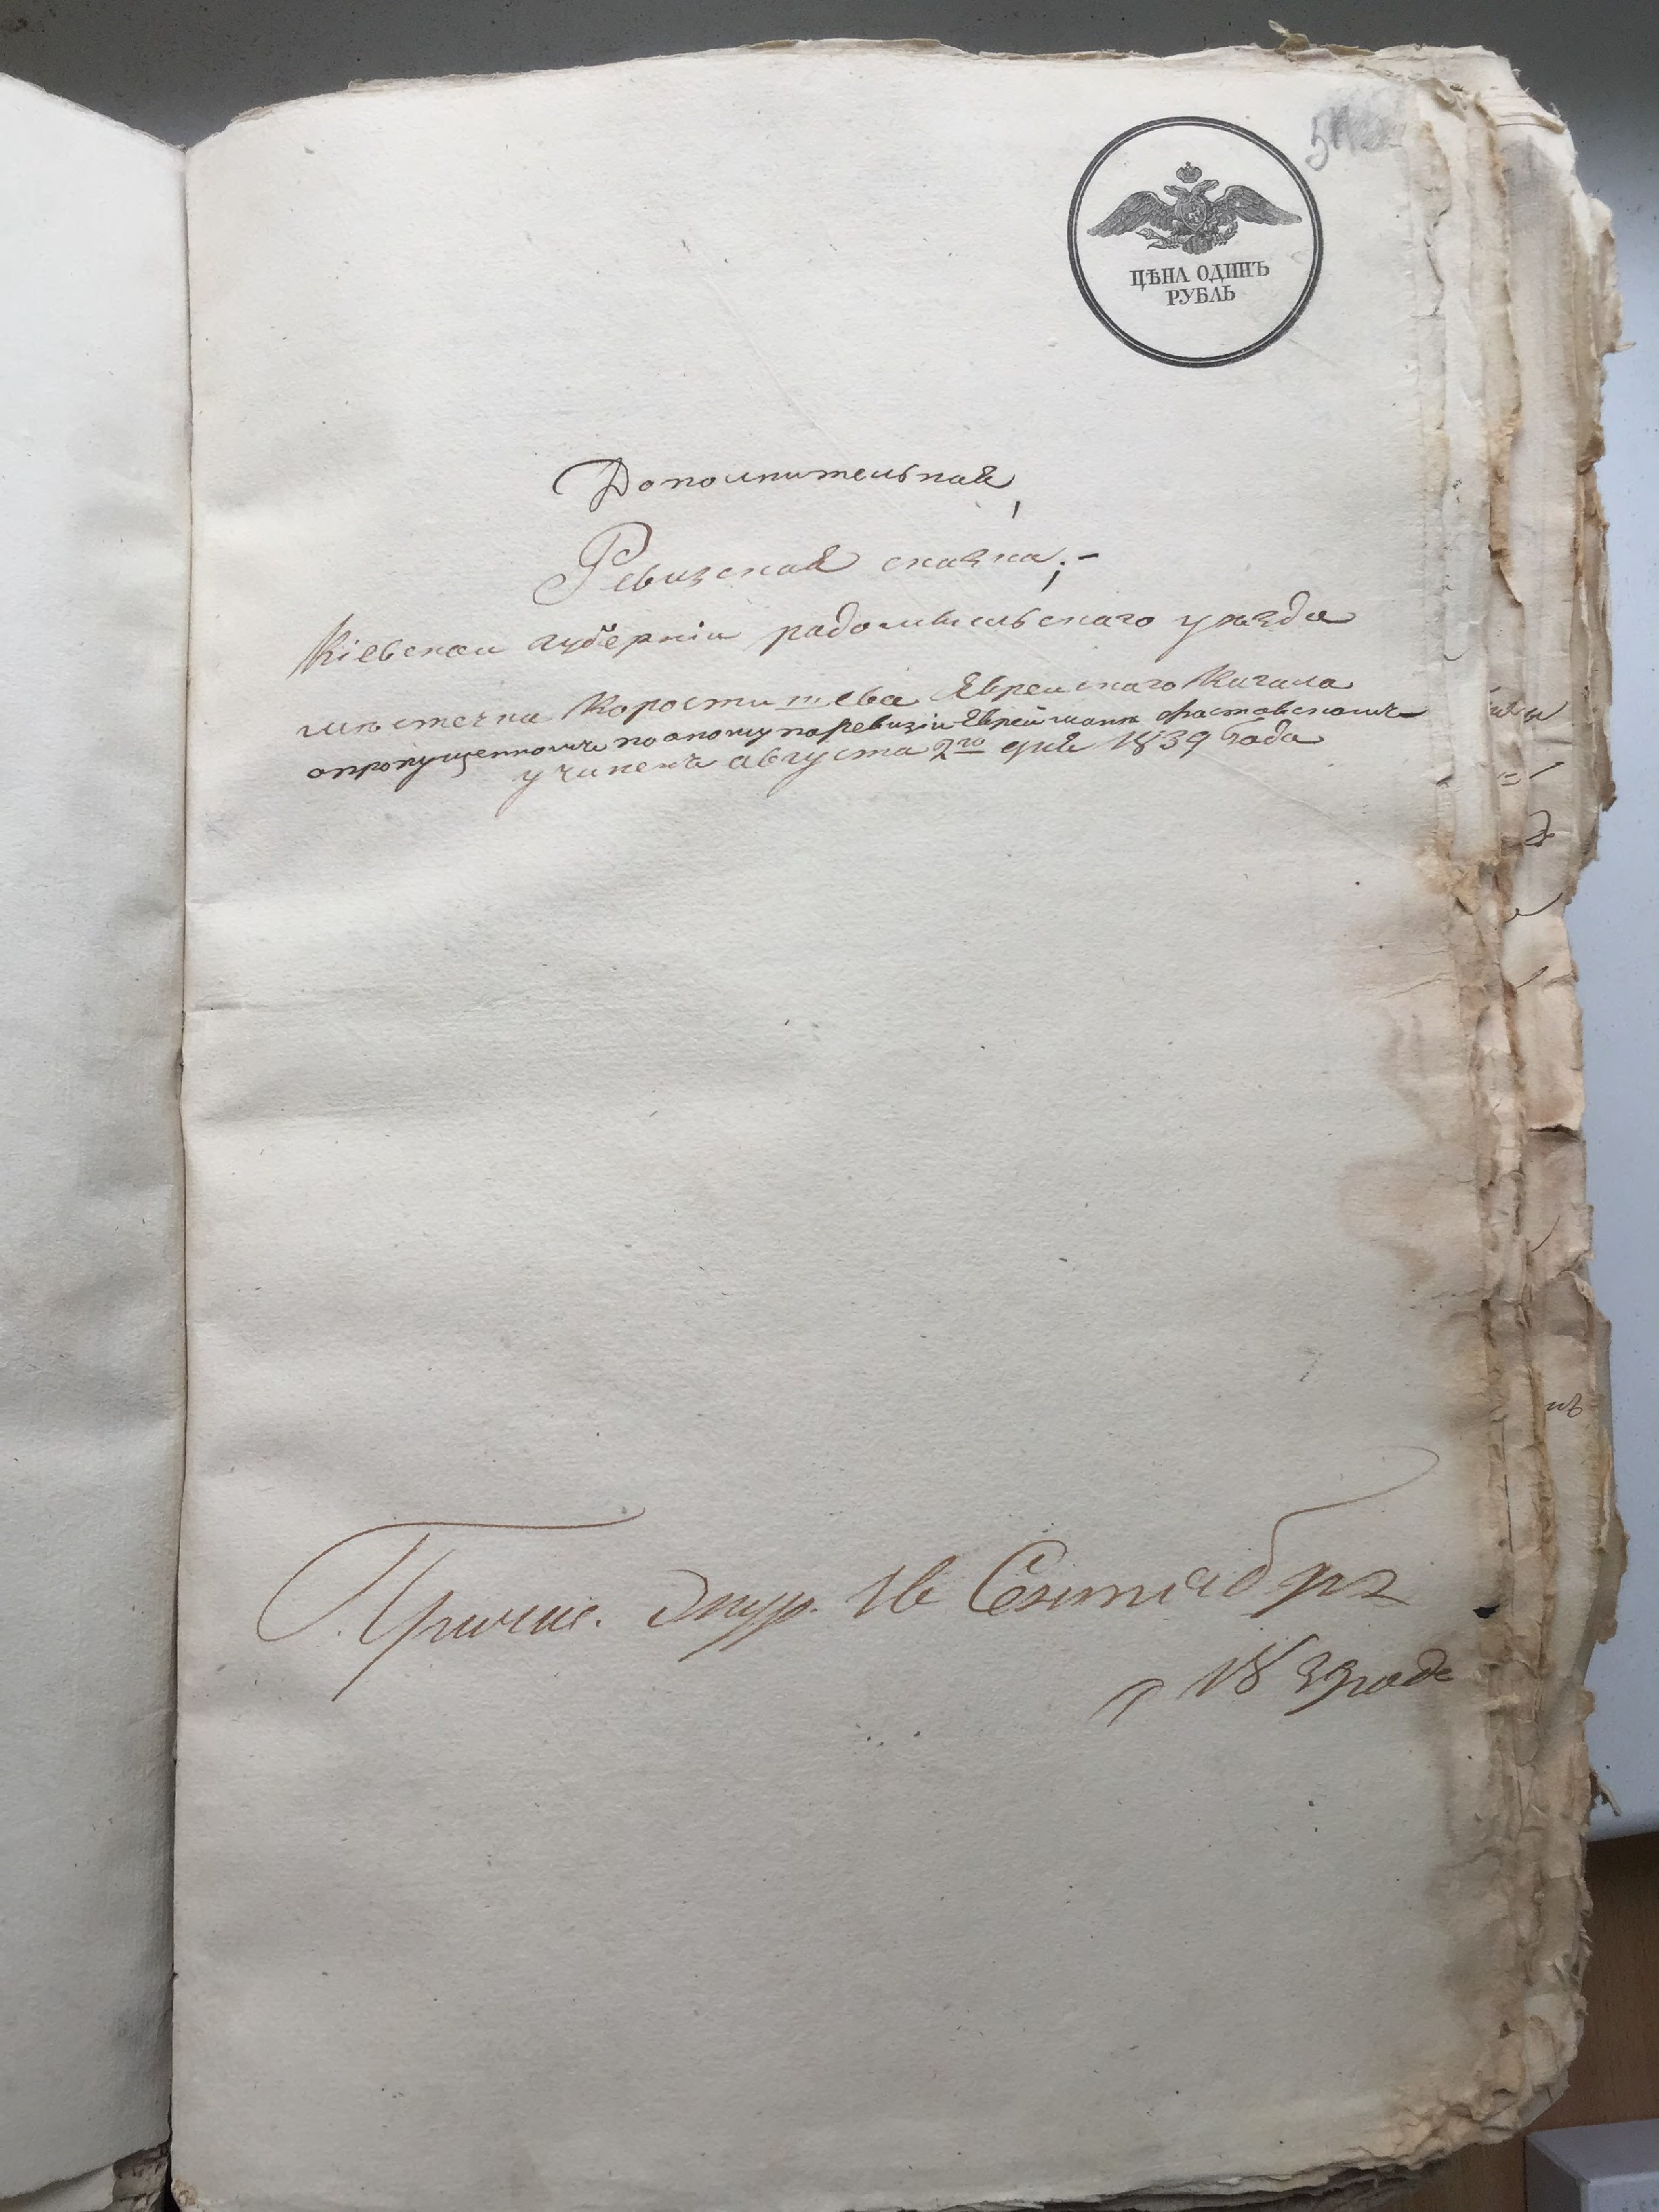 ЦѢНА ОДИНЪ
РУБЛЬ
Дополнительная
Ревизская сказка;-
Кіевской губерніи радомысльскаго уезда
местечка Коростишева Еврейскаго Кагала
опропущенномъ по оному поревизіи Еврей шаи фастовскомъ-
учинена августа 2го дня 1839 года
18 Сентября
1839 года